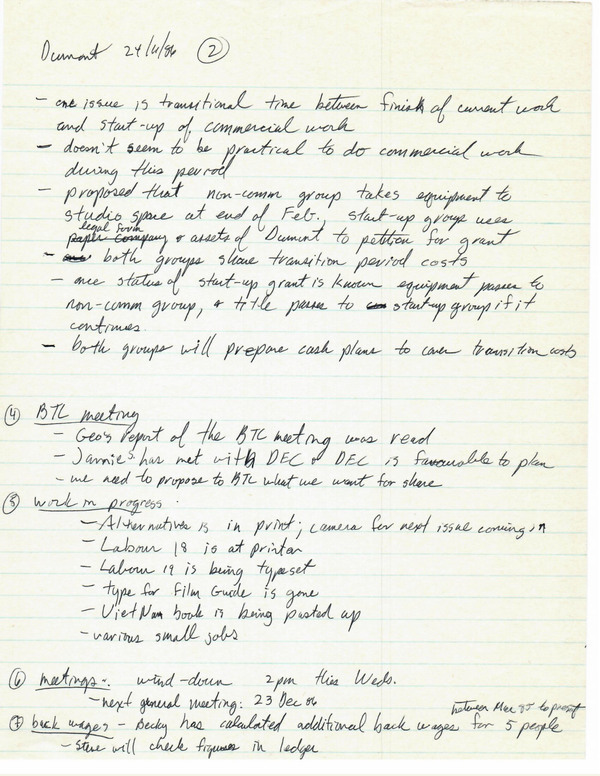 Dumont 24/11/86 (2)
- one issue is transitional time between finish of current work
and start-up of commercial work
- doesn't seem to be practical to do commercial work
during this period
- proposed that non-comm group takes equipment to
studio space at end of Feb., start-up group uses
legal form
paper company & assets of Dumont to petition for grant
- both groups share transition period costs
- once status of start-up grant is known equipment passes to
non-comm group, & title passes to start-up group if it
continues
- both groups will prepare cash plans to cover transition costs
(4) BTL meeting
- Geo's report of the BTL meeting was read
- Jamie S. has met with DEC & DEC is favourable to plan
- we need to propose to BTL what we want for share
(5) work in progress
- Alternatives is in print; camera for next issue coming in
- Labour 18 is at printer
- Labour 19 is being typeset
- type for Film Guide is gone
- Viet Nam book is being pasted up
- various small jobs
(6) meetings - wind-down 2pm this Weds.
- next general meeting: 23 Dec 86
between Mar 85 to present
(7) back wages - Becky has calculated additional back wages for 5 people
- Steve will check figures in ledger